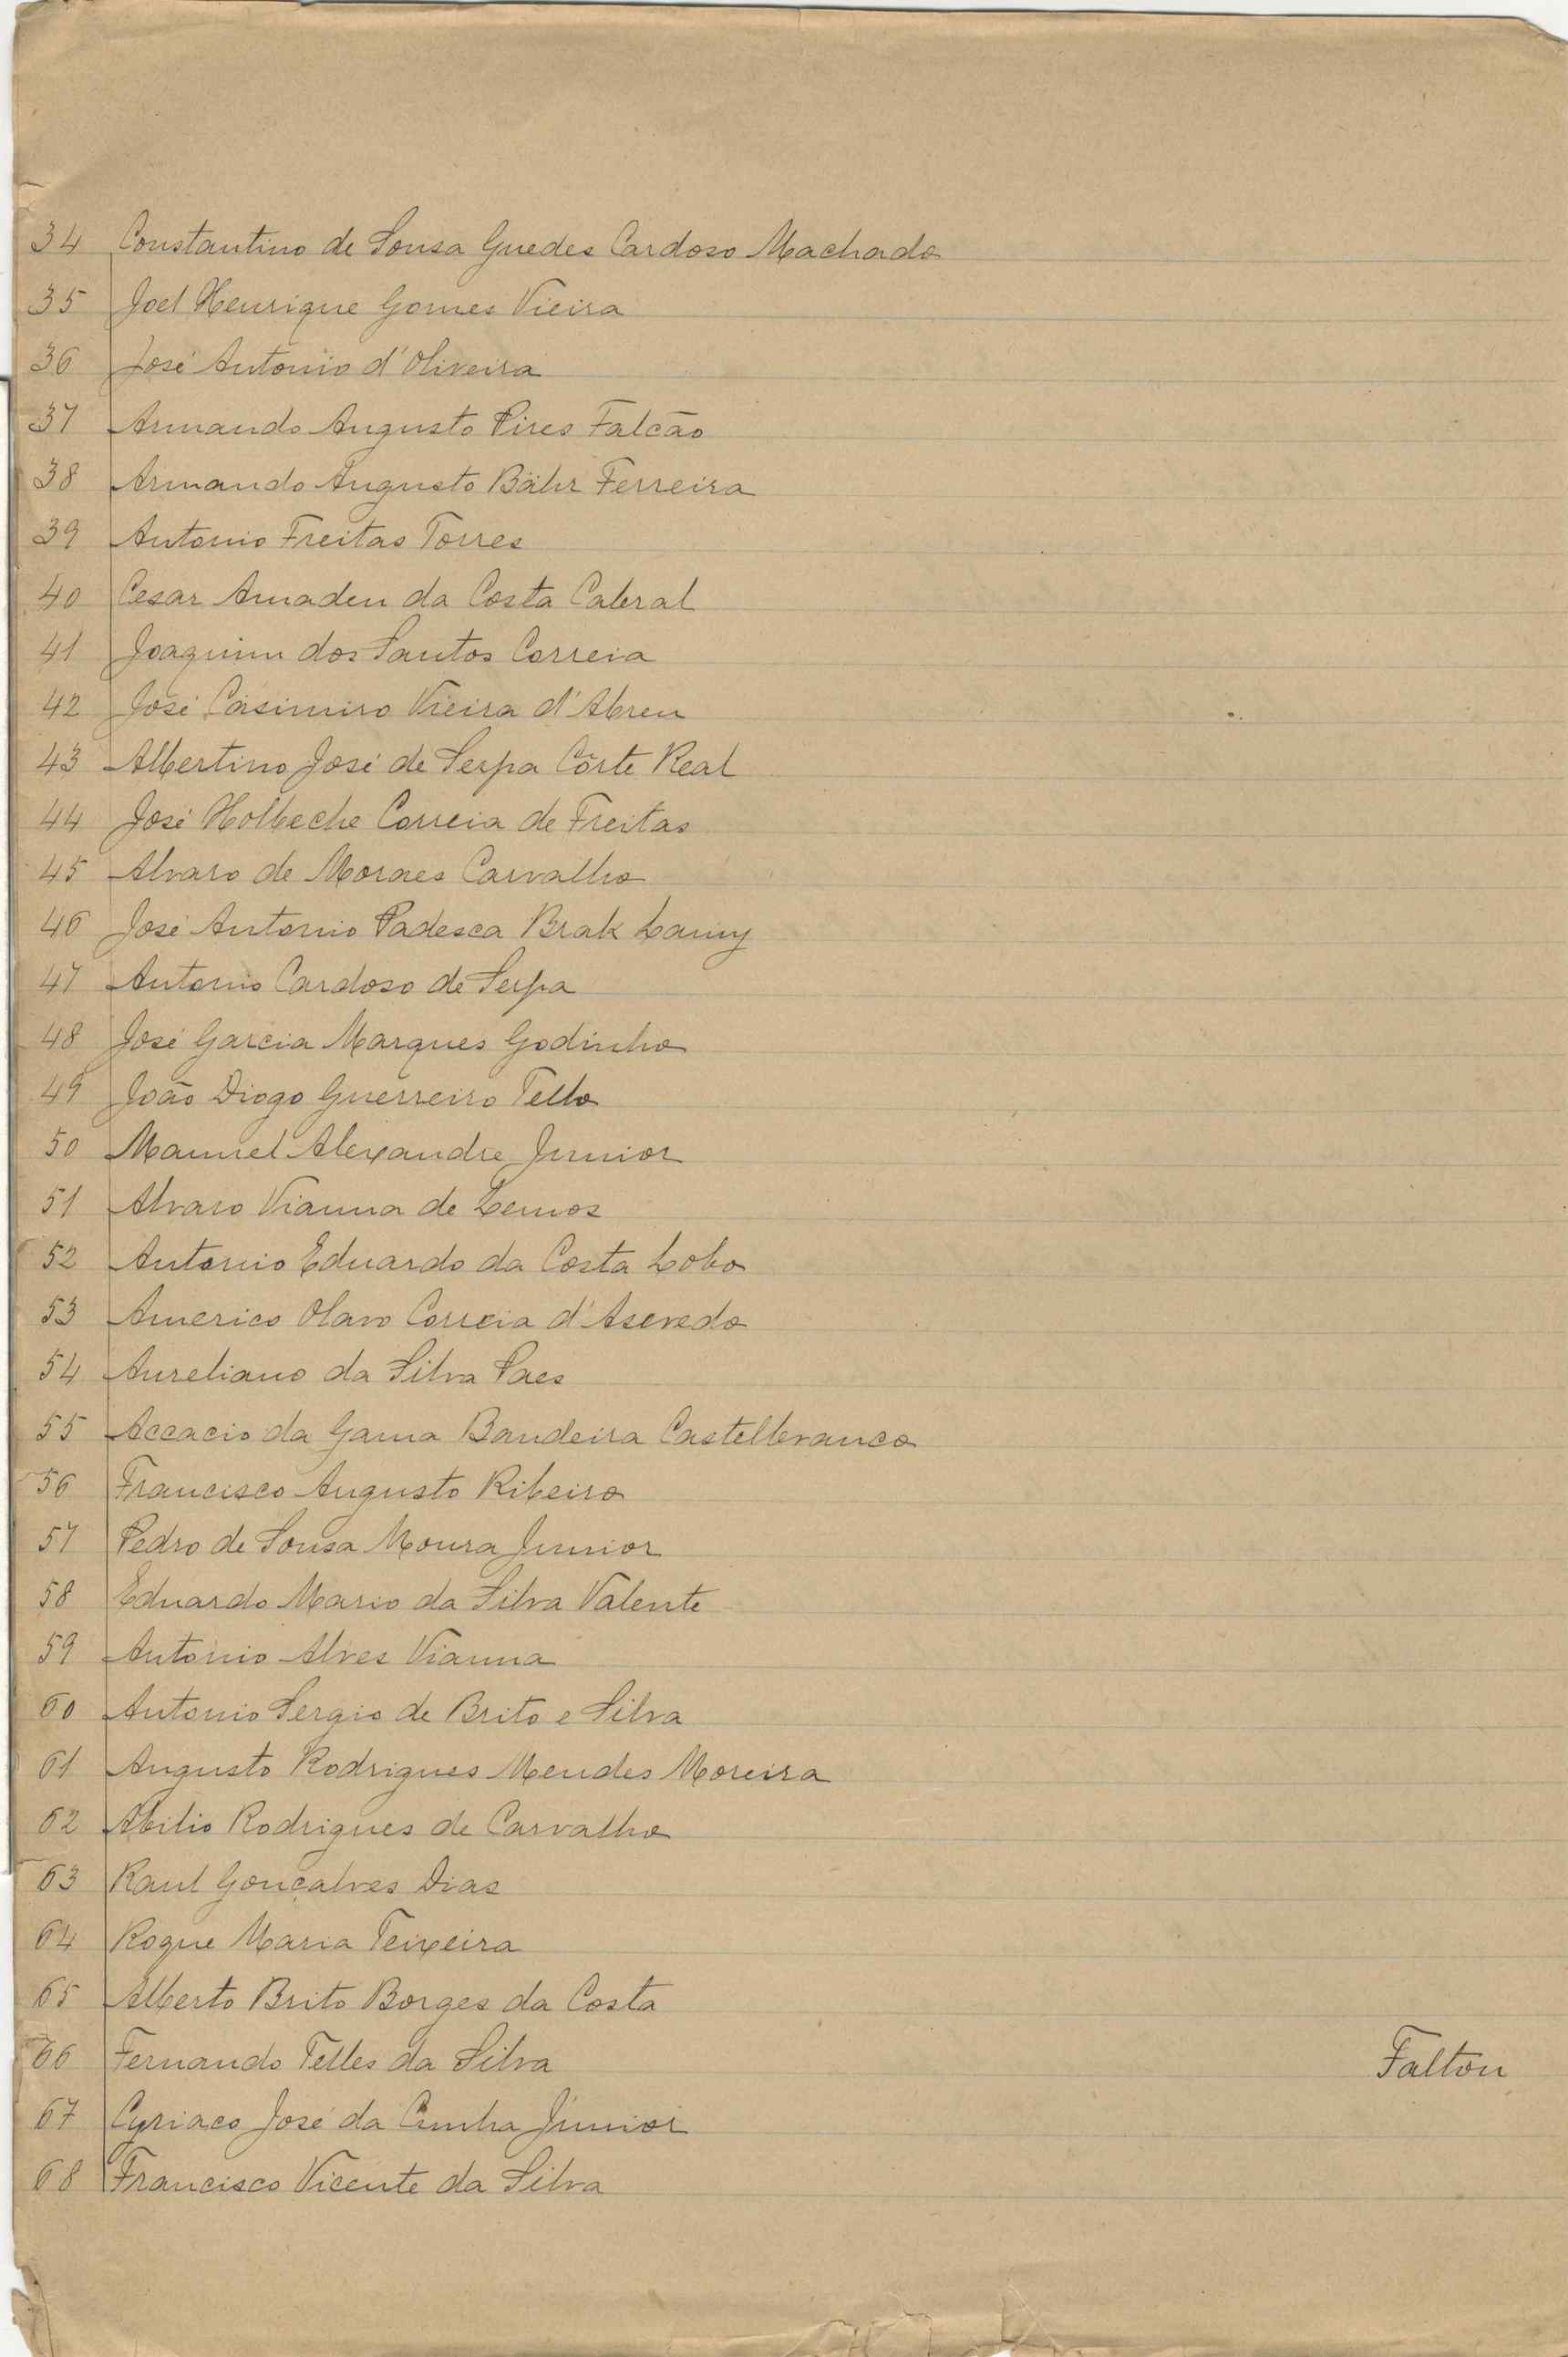 34 Constantino de Sousa Guedes Cardoso Machado
35 Joel Henrique Gomes Vieira
36 José Antonio d'Oliveira
37 Armando Augusto Pires Falcão
38 Armando Augusto Bähr Ferreira
39 Antonio Freitas Torres
40 Cesar Amadeu da Costa Cabral
41 Joaquim dos Santos Correia
42 José Casimiro Vieira d'Abreu
43 Albertino José de Serpa Côrte Real
44 José Holbeche Correia de Freitas
45 Alvaro de Moraes Carvalho
46 José Antonio Padesca Brak Lamy
47 Antonio Cardoso de Serpa
48 José Garcia Marques Godinho
49 João Diogo Guerreiro Tello
50 Manuel Alexandre Junior
51 Alvaro Vianna de Lemos
52 Antonio Eduardo da Costa Lobo
53 Americo Olavo Correia d'Asevedo
54 Aureliano da Silva Paes
55 Accacio da Gama Bandeira Castelbranco
56 Francisco Augusto Ribeiro
57 Pedro de Sousa Moura Junior
58 Eduardo Mario da Silva Valente
59 Antonio Alves Vianna
60 Antonio Sergio de Brito e Silva
61 Augusto Rodrigues Mendes Moreira
62 Abilio Rodrigues de Carvalho
63 Raul Gonçalves Dias
64 Roque Maria Teixeira
65 Alberto Brito Borges da Costa
66 Fernando Telles da Silva Faltou
67 Cyriaco José da Cunha Júnior
68 Francisco Vicente da Silva